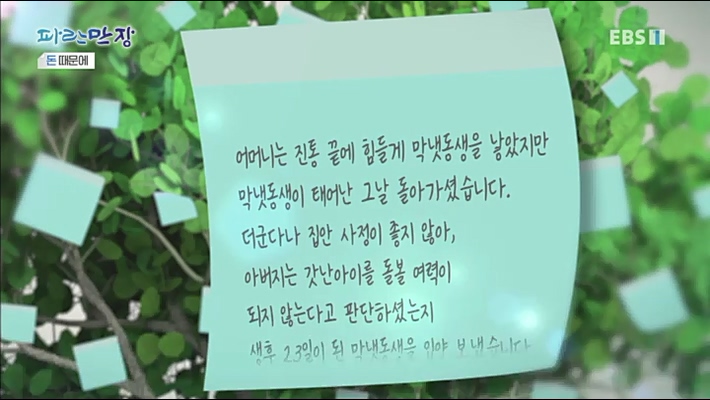 파란만장
돈 때문에
EBS1
어머니는 진통 끝에 힘들게 막냇동생을 낳았지만
막냇동생이 태어난 그날 돌아가셨습니다.
더군다나 집안 사정이 좋지 않아,
아버지는 갓난아이를 돌볼 여력이
되지 않는다고 판단하셨는지
생후 23일이 된 막냇동생을 입양 보냈습니다